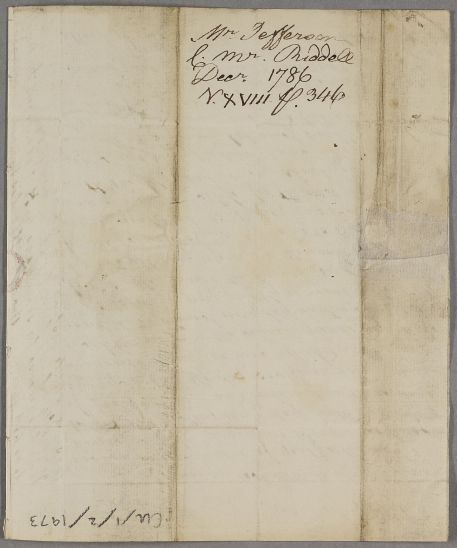 Mr. Jefferson
C. Mr. Riddell
Decr. 1786
N. XVIII f. 346
CU/1/2/1973